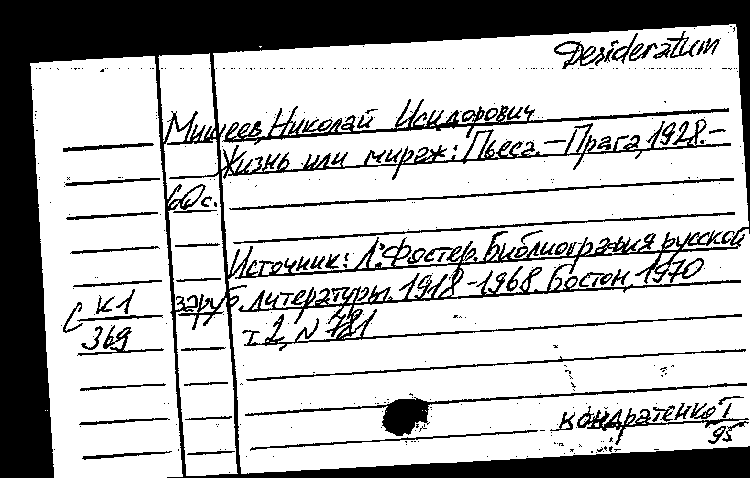 Desideratum
Мишеев, Николай Исидорович
Жизнь или мираж: Пьеса. — Прага, 1928. —
60 с.
Источник: Л. Фостер. Библиография русской
заруб. литературы. 1918-1968. Бостон, 1970
С К1
369
т. 2, N 781
Кондратенко Т
95